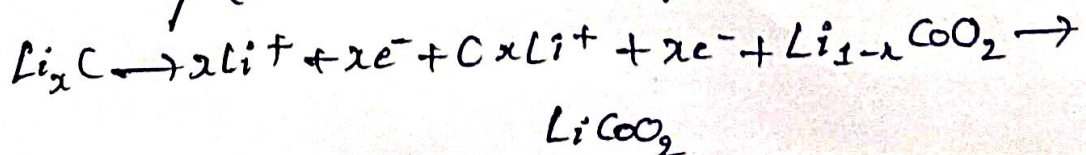 LiₓC → xLi⁺ + xe⁻ + C xLi⁺ + xe⁻ + Li₁₋ₓCoO₂ →
LiCoO₂